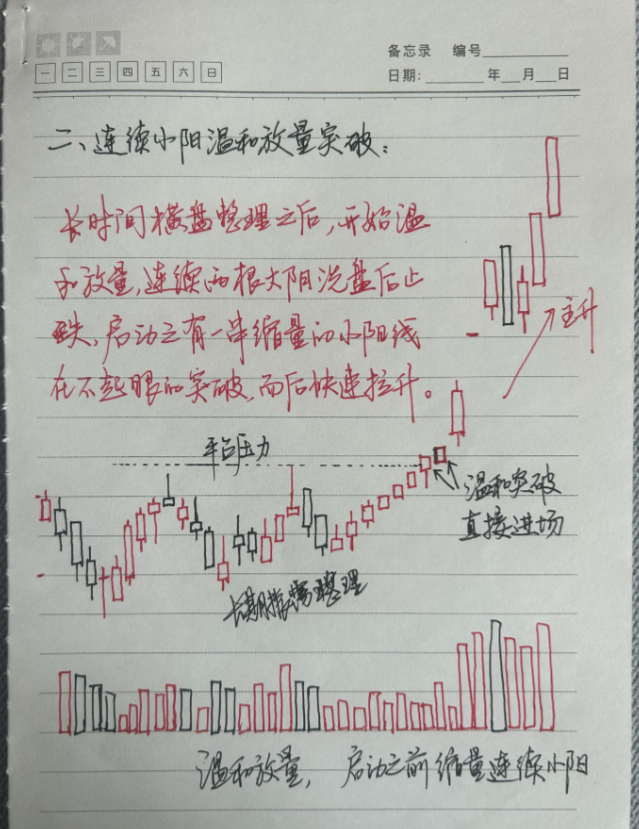 备忘录 编号
一 二 三 四 五 六 日
日期: 年 月 日
二、连续小阳温和放量突破:
长时间横盘整理之后,开始温
和放量,连续两根大阳洗盘后止
跌、启动之有一串缩量的小阳线
在不起眼的突破,而后快速拉升。
主升
平台压力
温和突破
直接进场
长期横盘整理
温和放量, 启动之前缩量连续小阳